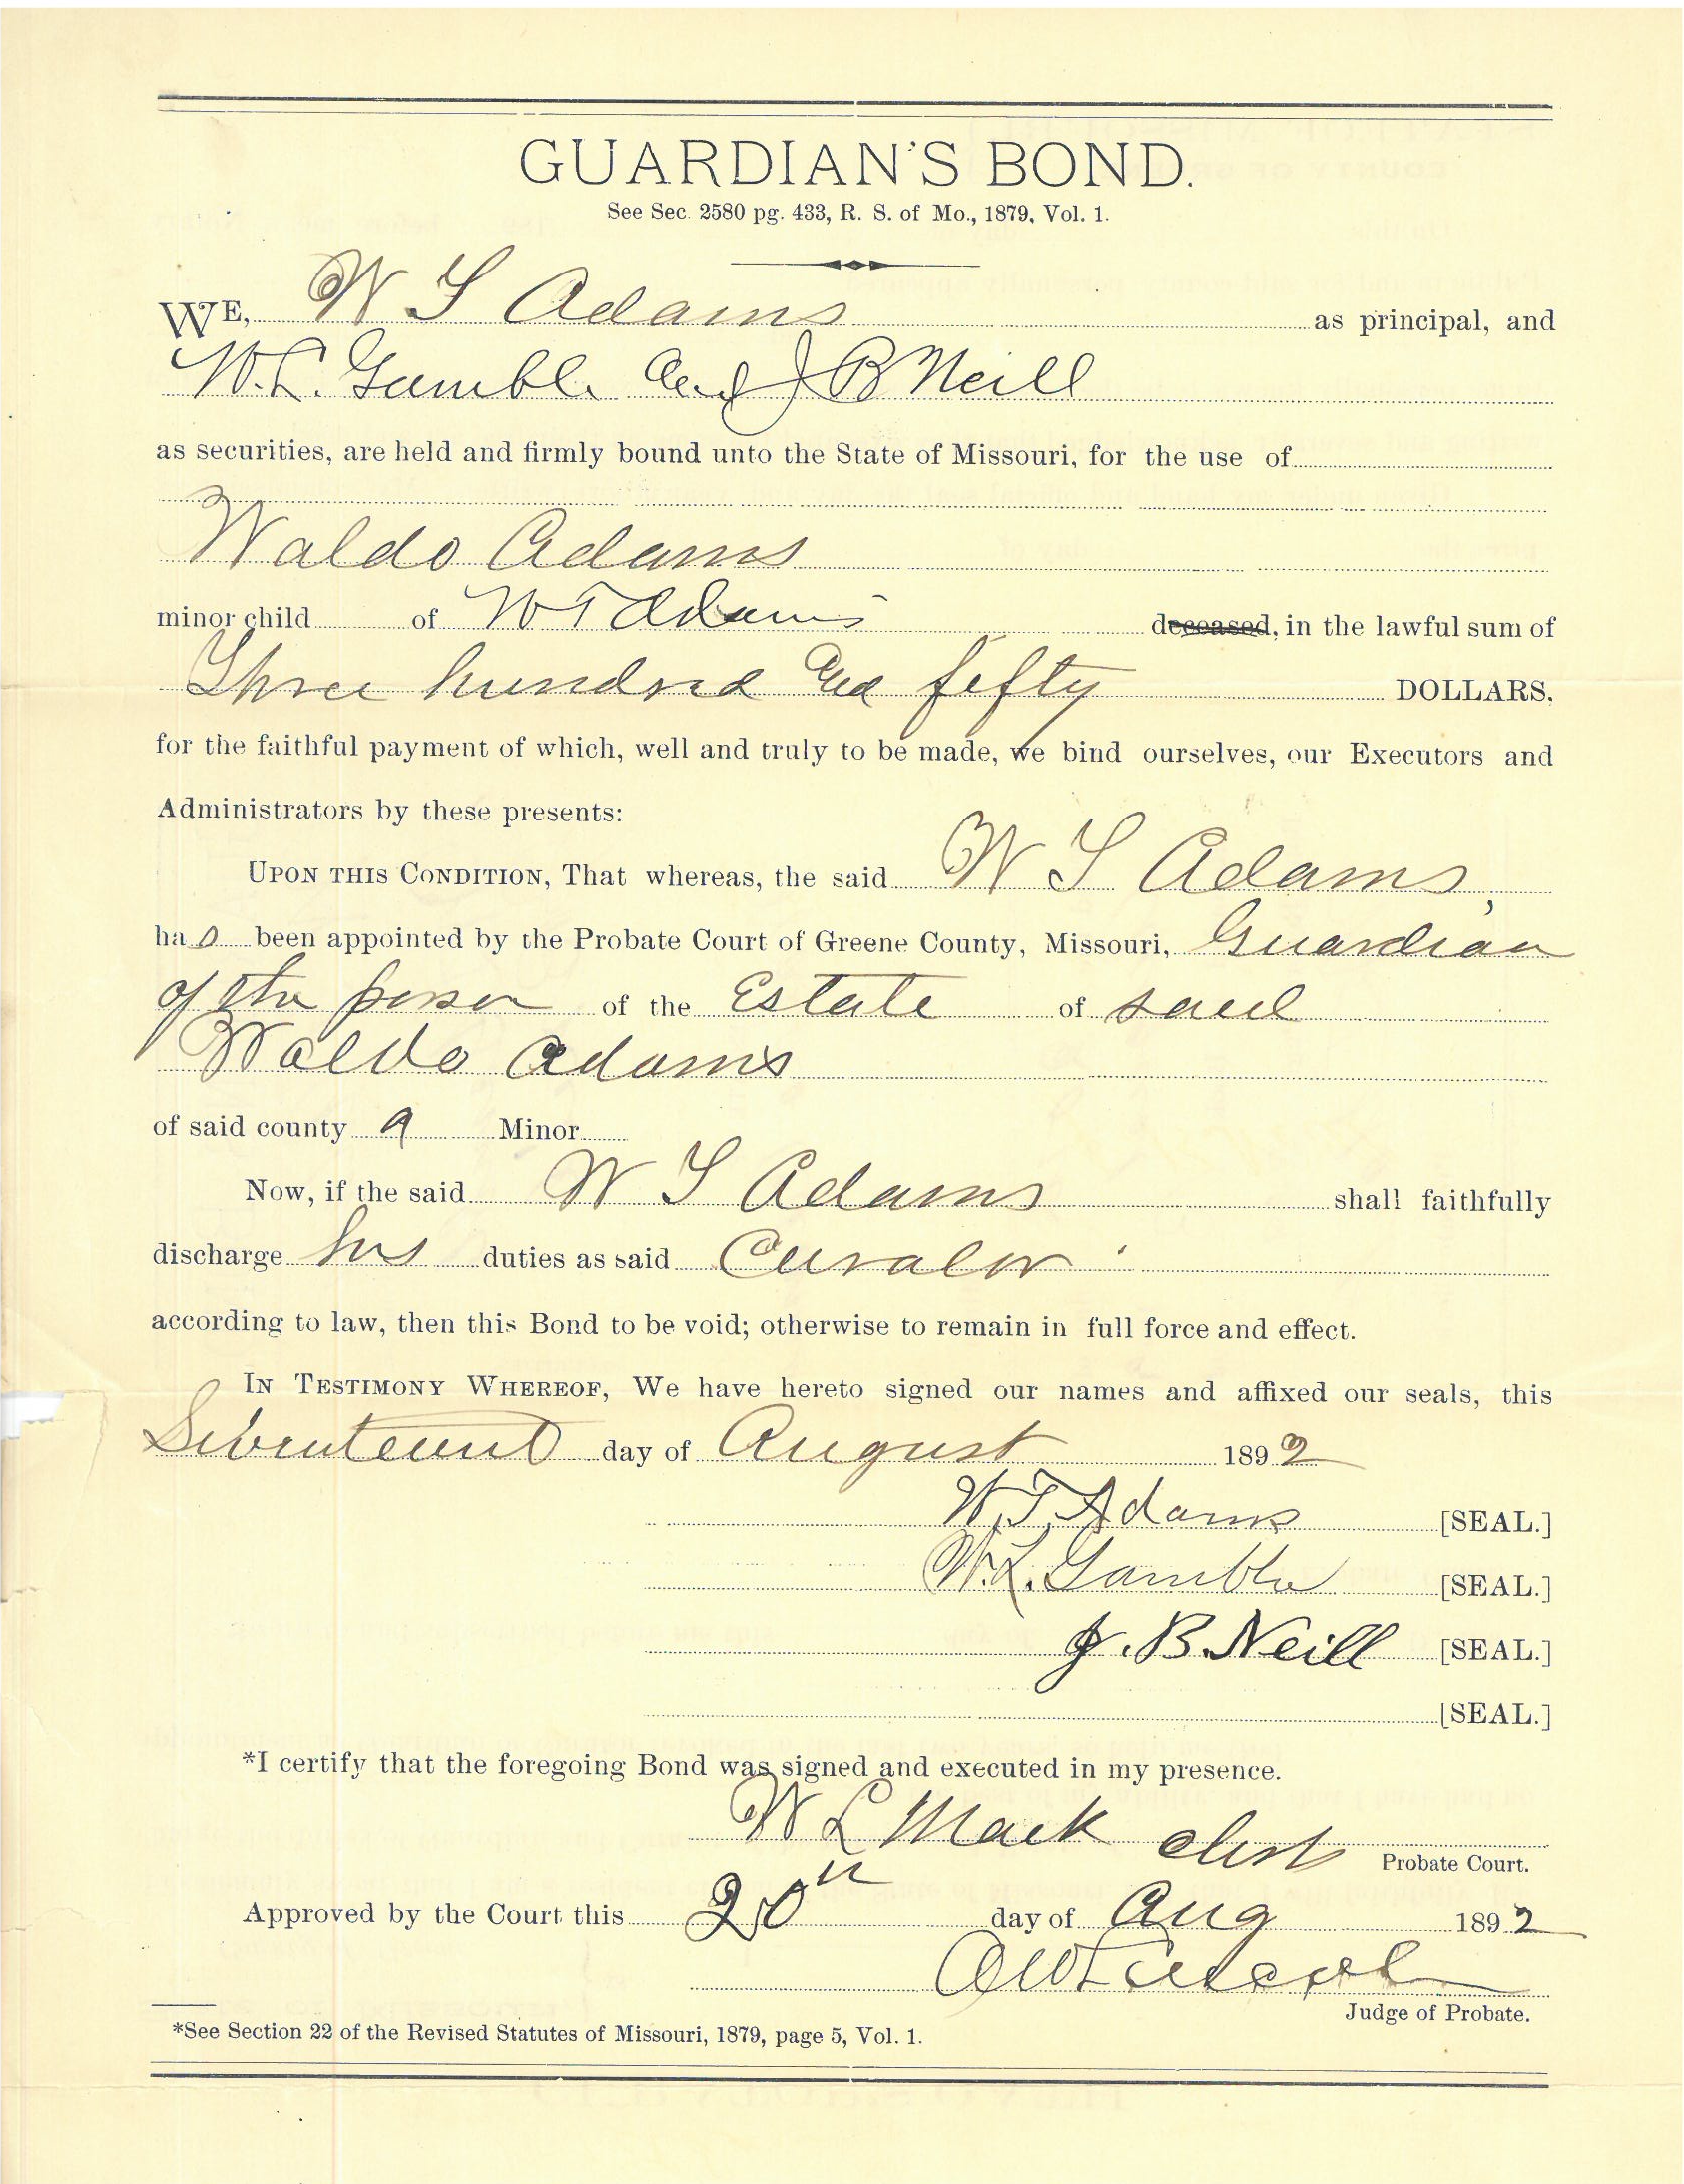 GUARDIAN'S BOND.
See Sec. 2580 pg. 433, R. S. of Mo., 1879, Vol. 1.
WE, W T Adams as principal, and
W. L. Gamble and J B Neill
as securities, are held and firmly bound unto the State of Missouri, for the use of
Waldo Adams
minor child of W T Adams deceased, in the lawful sum of
Three hundred and fifty DOLLARS,
for the faithful payment of which, well and truly to be made, we bind ourselves, our Executors and
Administrators by these presents:
UPON THIS CONDITION, That whereas, the said W T Adams,
has been appointed by the Probate Court of Greene County, Missouri, Guardian
of the person of the Estate of said
Waldo Adams
of said county a Minor
Now, if the said W T Adams shall faithfully
discharge his duties as said Curator
according to law, then this Bond to be void; otherwise to remain in full force and effect.
IN TESTIMONY WHEREOF, We have hereto signed our names and affixed our seals, this
day of August 1892
W. T. Adams [SEAL.]
W. L. Gamble [SEAL.]
J. B. Neill [SEAL.]
[SEAL.]
*I certify that the foregoing Bond was signed and executed in my presence.
W L Mack Probate Court.
Approved by the Court this 20th day of Aug 1892
Judge of Probate.
*See Section 22 of the Revised Statutes of Missouri, 1879, page 5, Vol. 1.